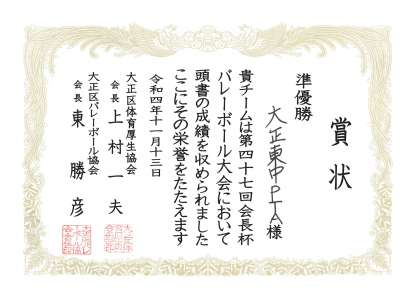 賞状
準優勝
大正東中PTA様
貴チームは第四十七回会長杯
バレーボール大会において
頭書の成績を収められました
ここにその栄誉をたたえます
令和四年十一月十三日
大正区体育厚生協会
会長 上村一夫
大正区バレーボール協会
会長 東勝彦